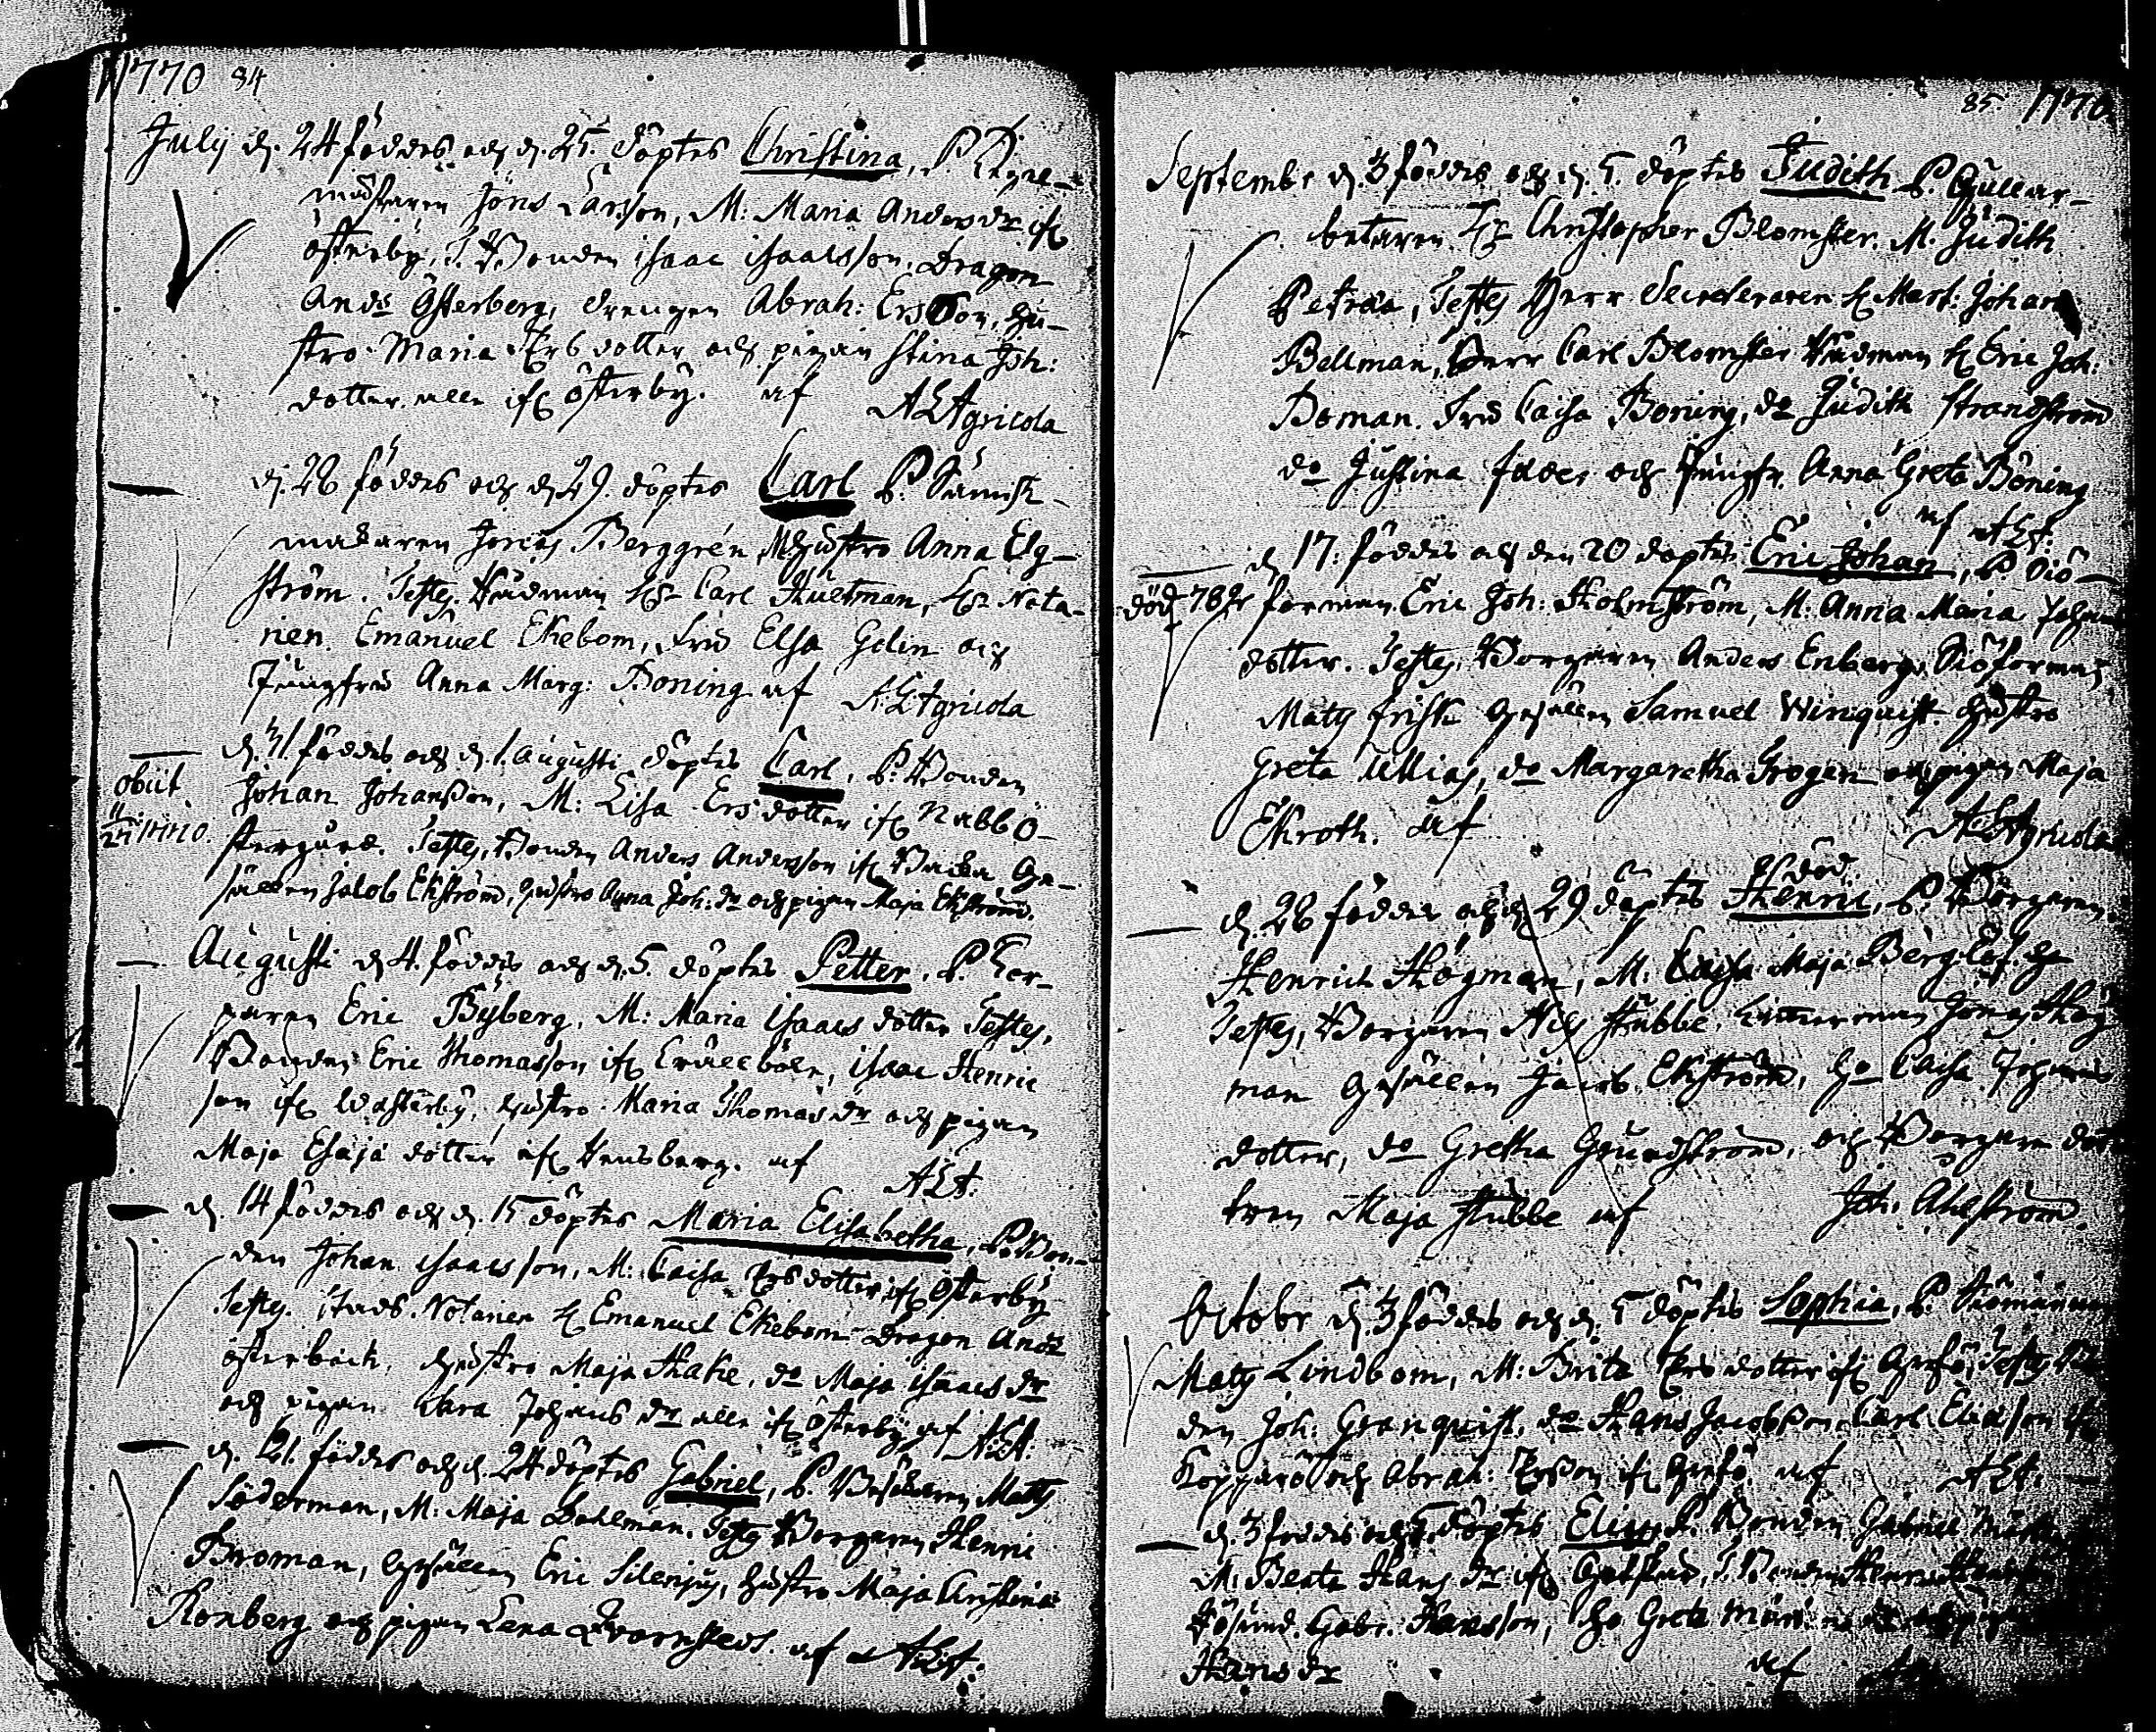 1770 84
Julij d. 24 föddes och d. 25. döptes Christina, P.
mästaren Jöns Larsson, M: Maria Anders dr ifr
österby, T. Bonden isaac isaacsson, Dragon
Ands Österberg, drengen Abrah: Ersson, hu-
stro Maria Ersdotter och pigan Stina Joh:
dotter alle ifr österby. af A L Agricola
d. 28 föddes och d. 29. döptes Carl P.
makaren Jonas Berggrén, M. Hustro Anna Elg-
ström. Testes. Rådman Hr Carl Hultman, Hr Nota-
rien Emanuel Ekebom, fru Elsa Gelin och
Jungfru Anna Marg: Boning af A L Agricola
d. 31 föddes och d. 1. augusti döptes Carl, P. Bonden
obiit
Johan Johansson, M: Lisa Ersdotter ifr Nabb Ö-
stergård. Testes, Bonden Anders Andersson ifr Backa Ge-
sällen Jacob Ekström, hustro Anna Joh: dr och pigan Maja Ekström.
Augusti d. 4. föddes och d. 5. döptes Petter, P.
Eric Byberg, M: Maria Isaacs dotter Testes,
Bonden Eric Thomasson ifr isaac Henric
son ifr Wästerby, hustro Maria Thomas dr och pigan
Maja Esaja dotter ifr af A L A:
d. 14 föddes och d. 15 döptes Maria Elisabetha, P. Bon-
den Johan isaacsson, M: Caisa Ersdotter ifr Österby
Testes. Stads Notarien H Emanuel Ekebom Dragon Ands
österbäck, Hustro Maja Hake, do Maja isaacs dr
och pigan Clara Johans dr alle ifr Österby af A L A:
d. 21. föddes och d. 24 döptes Gabriel, P. Matts
Söderman, M: Maja Dahlman. Testes Borgaren Henric
Broman, Gesällen Eric Silenius, hustro Maja Christina
Ronberg och pigan Lena Qvarnstedt. af A L A:
85 1770
September d. 3 föddes och d. 5. döptes Judith P. Gullar-
betaren Hr Christopher Blomster. M. Judith
Petræa, Testes Herr Secreteraren H Mart: Johan
Bellman, Herr Carl Blomster Rådman H Eric Joh:
Boman. fru Caisa Boning, do Judith Strandström
do Justina och Jungfr. Anna Greta Böning
af A L A:
d. 17: föddes och den 20 döptes Eric Johan, P. Siö-
död 78
forman Eric Joh: Holmström, M: Anna Maria Johans
dotter. Testes, Borgaren Anders Enberg, Siöforman
Matts Frisk Gesällen Samuel Winquist. Hustro
Greta Ullias, do Margaretha Grogen och pigan Maja
Ekroth. af A L Agricola
död.
d. 28 föddes och d. 29 döptes Henric, P. Borgaren
Henrich Högman, M. Caisa Maja Berglöf
Testes, Borgaren Nils Stubbe, Jonas Hög
man Gesällen Jacob Ekström, Ho Caisa Johans
dotter, do Gretha Grundström, och Borgare dot
tren Maja Stubbe af Joh: Ahlström
October d. 3 föddes och d. 5 döptes Sophia, P.
Matts Lindbom, M: Brita Ersdotter ifr Testes
den Joh: Granquist, do Hans Jacobsson Carl Eliasson ifr
Kopparö och Abrah: Ersson ifr af A L A.
d. 3 föddes och 5 döptes Elias P. Bonden Gabriel
M: Beata Hans dr ifr
Gabr: Hansson, ho Greta
Hans dr af